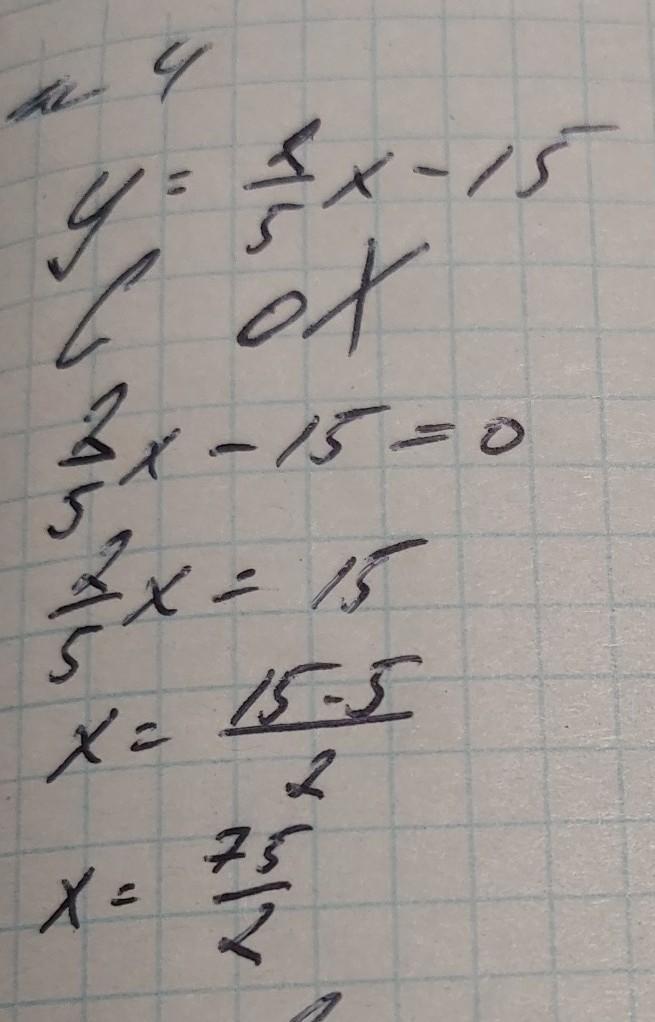 № 4
y = 2/5 x - 15
С OX
2/5 x - 15 = 0
2/5 x = 15
x = 15·5/2
x = 75/2